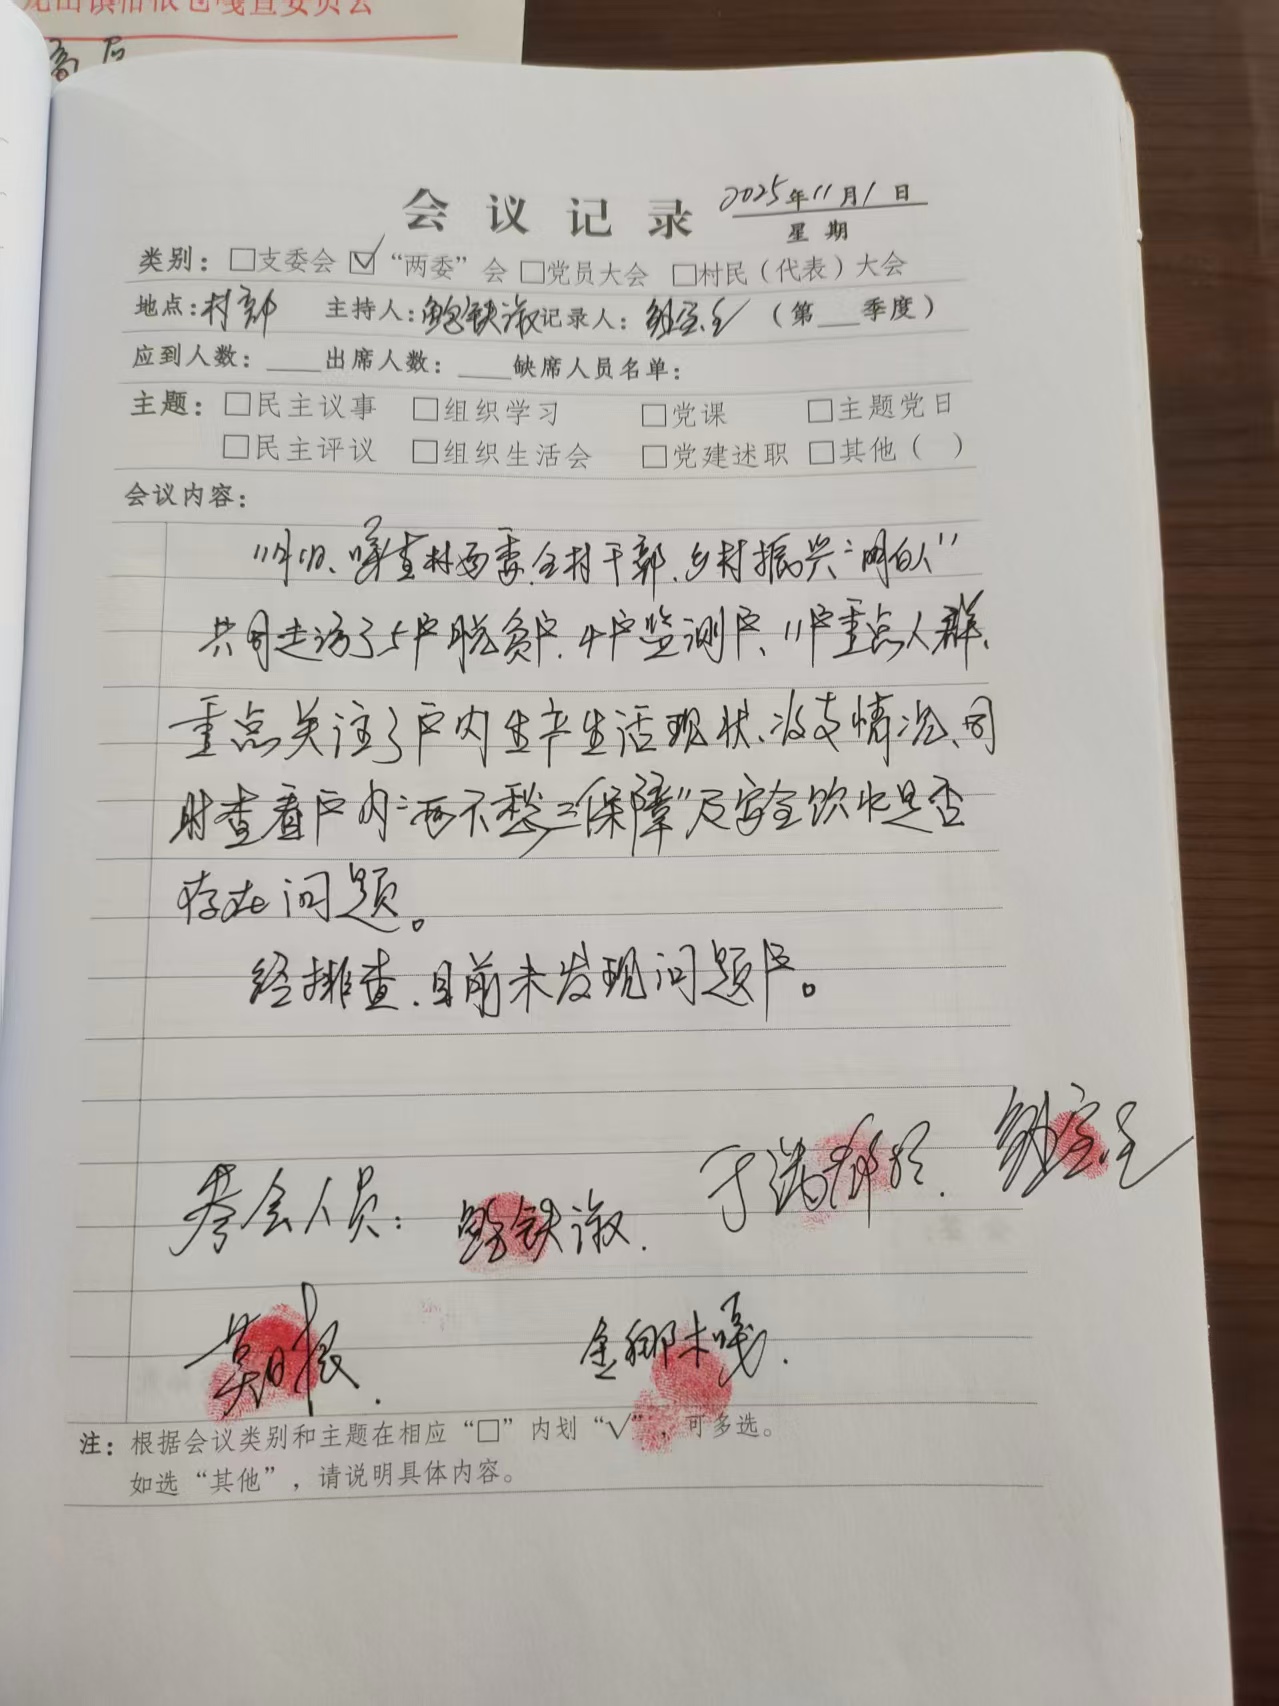 龙山镇
嘎查委员会
会议记录 2025年11月1日
星期
类别：□支委会 ☑“两委”会 □党员大会 □村民（代表）大会
地点：村部 主持人：鲍铁淑 记录人： （第___季度）
应到人数：____出席人数：____缺席人员名单：
主题：□民主议事 □组织学习 □党课 □主题党日
□民主评议 □组织生活会 □党建述职 □其他（ ）
会议内容：
11月1日、嘎查村两委、全村干部、乡村振兴“明白人”
共同走访了5户脱贫户、4户监测户、11户重点人群、
重点关注了户内生产生活现状、收支情况、同
时查看户内“两不愁三保障”及安全饮水是否
存在问题。
经排查、目前未发现问题户。
参会人员：鲍铁淑.
金娜木嘎.
注：根据会议类别和主题在相应“□”内划“√”，可多选。
如选“其他”，请说明具体内容。